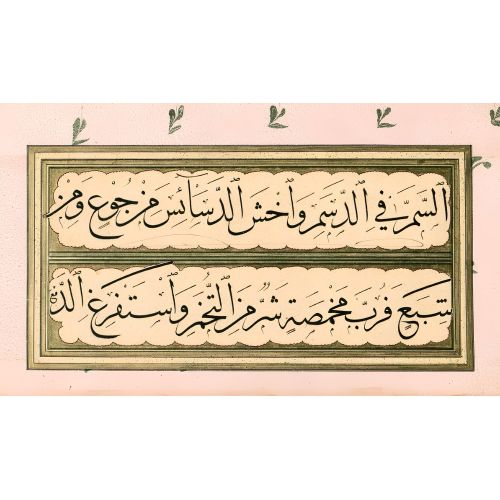 السَّمَّ فِي الدَّسَمِ وَاخْشَ الدَّسَائِسَ مِنْ جُوعٍ وَمِنْ
شَبَعٍ فَرُبَّ مَخْمَصَةٍ شَرٌّ مِنَ التُّخَمِ وَاسْتَفْرِغِ الدَّمْعَ